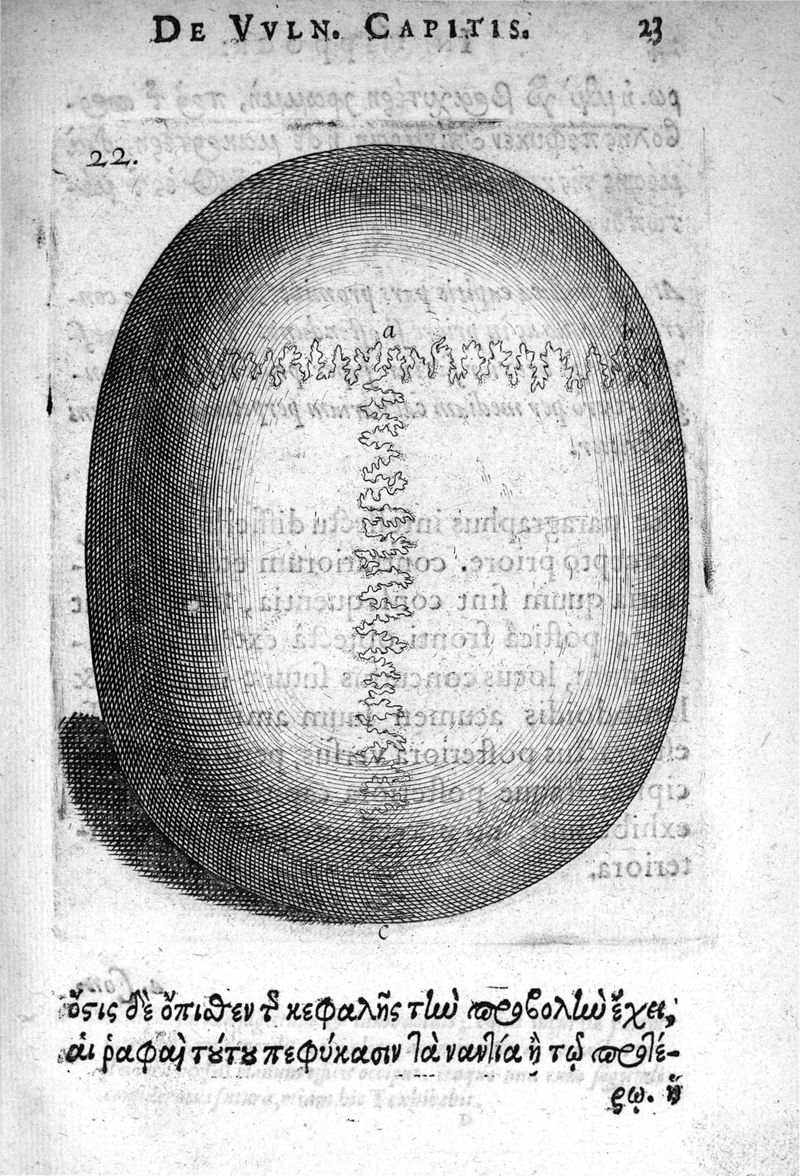 DE VVLN. CAPITIS. 23
22.
a b
c
ὅςις δὲ ὄπιθεν τ κεφαλῆς τὴν προβολὴν ἔχει,
αἱ ῥαφαὶ τούτου πεφύκασιν τἀναντία ἢ τῷ προτέ-
ρῳ. ἡ